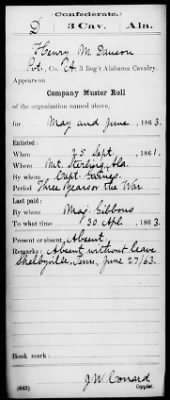 Confederate.
D 3 Cav. Ala.
Henry M. Dawson
Pvt., Co. A, 3 Reg't Alabama Cavalry,
Appears on
Company Muster Roll
of the organization named above,
for May and June, 1863.
Enlisted:
When 25 Sept, 1861.
Where Mt. Sterling, Ala.
By whom Capt.
Period Three Years or the War
Last paid:
By whom Maj. Gibbons
To what time 30 Apl. 1863.
Present or absent, Absent
Remarks: Absent without leave
Shelbyville, Tenn, June 27/63.
Book mark:
(642) J W Conrard
Copyist.